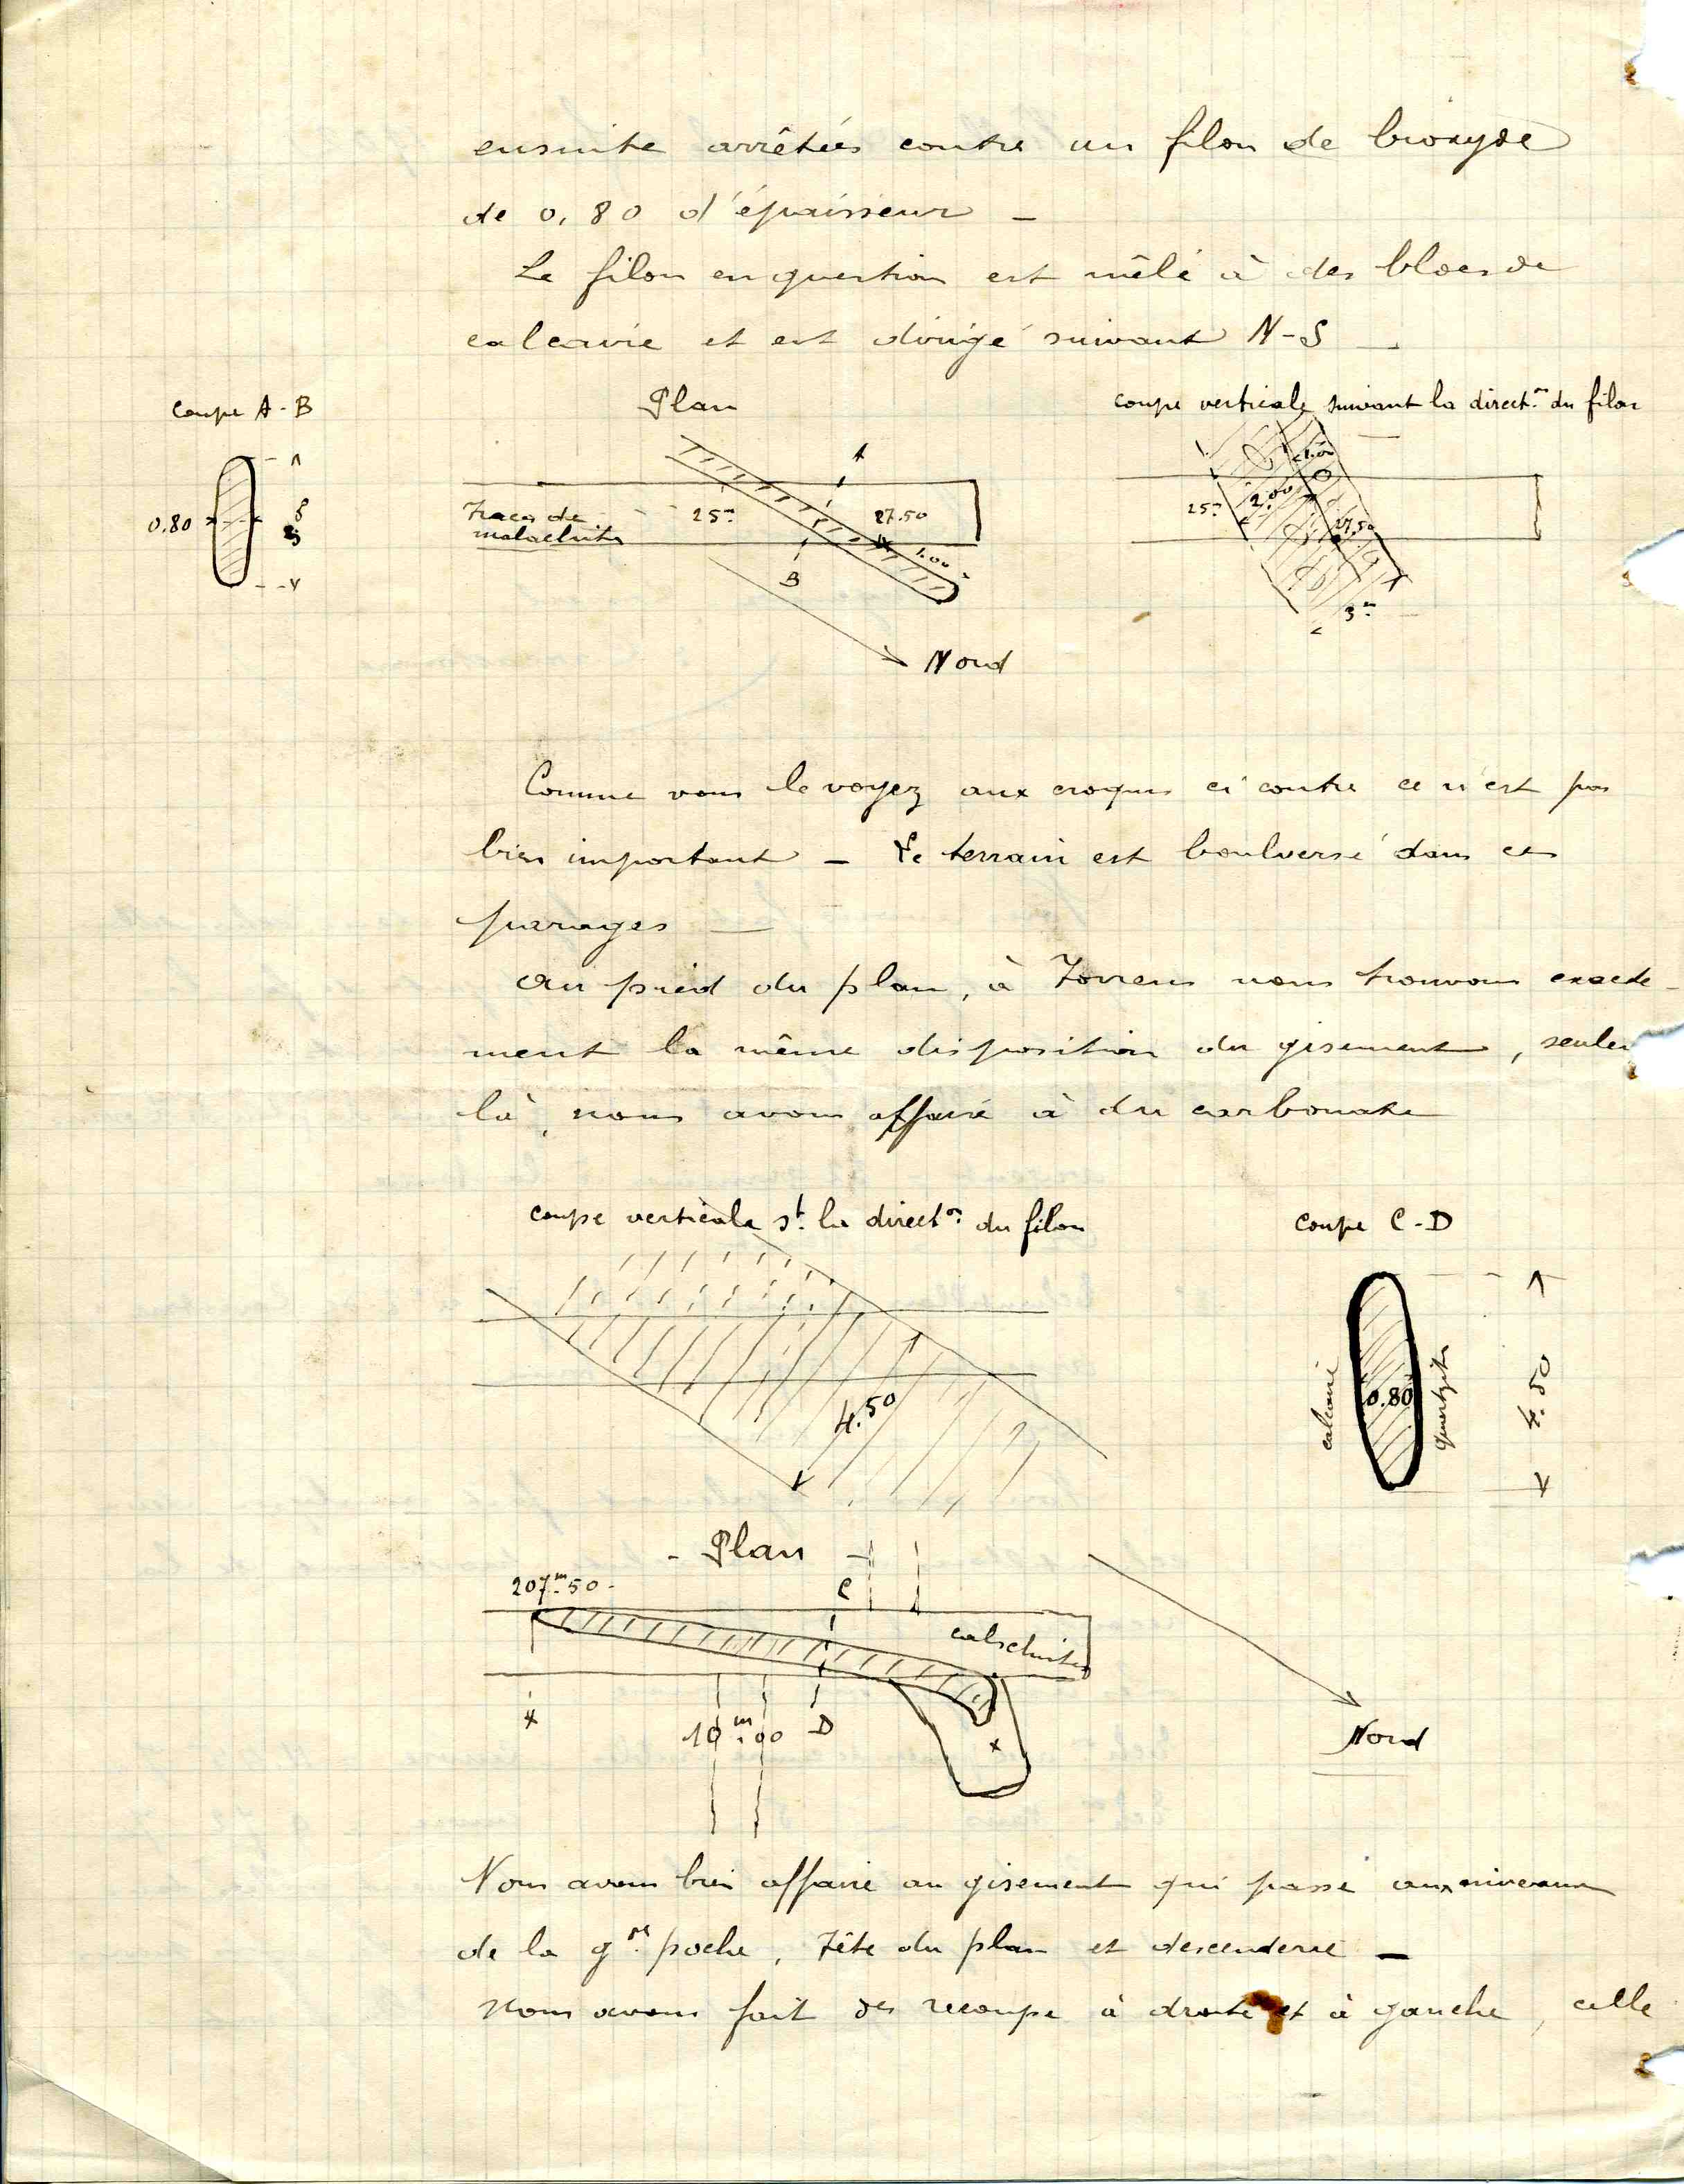 ensuite arrêtées contre un filon de bioxyde
de 0,80 d'épaisseur –
Le filon en question est mêlé à des blocs de
calcaire et est dirigé suivant N-S –
Coupe A-B
Plan
coupe verticale suivant la direct.on du filon
0.80
A
Traces de
malachite
25m
27.50
1.00
B
Nord
1.00
25m
2.00
27.50
3m
Comme vous le voyez aux croquis ci contre ce n'est pas
bien important – Le terrain est boulversé dans ces
parages –
Au pied du plan, à Torrens nous trouvons exacte-
ment la même disposition du gisement, seulem
là, nous avons affaire à du carbonate
coupe verticale st. la direct.on du filon
coupe C-D
4.50
calcaire
0.80
quartzite
4.50
- Plan -
207m.50 -
C
calschiste
x
10m.00
D
x
Nord
Nous avons bien affaire au gisement qui passe aux niveaux
de la gde poche, Tête du plan et descenderie –
Nous avons fait des recoupe à droite et à gauche, celle